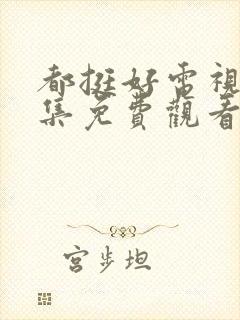 都挺好電視
集免費觀看
宮步坦